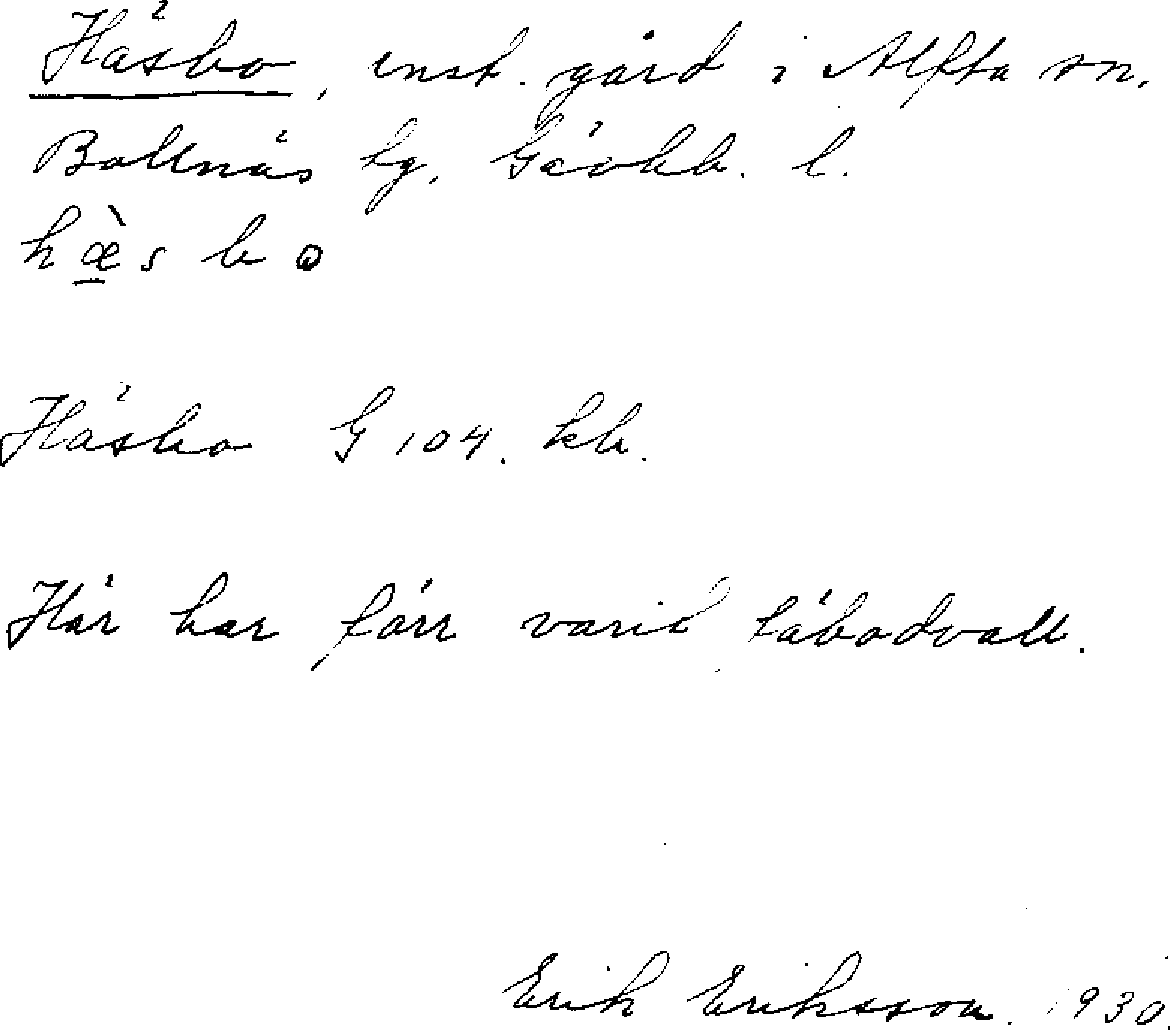 Häsbo, enst. gård i Alfta sn.
Bollnäs tg, Gävleb. l.
hæ̀s bo
Häsbo G 104. kb.
Här har förr varit fäbodvall.
Erik Eriksson. 1930.